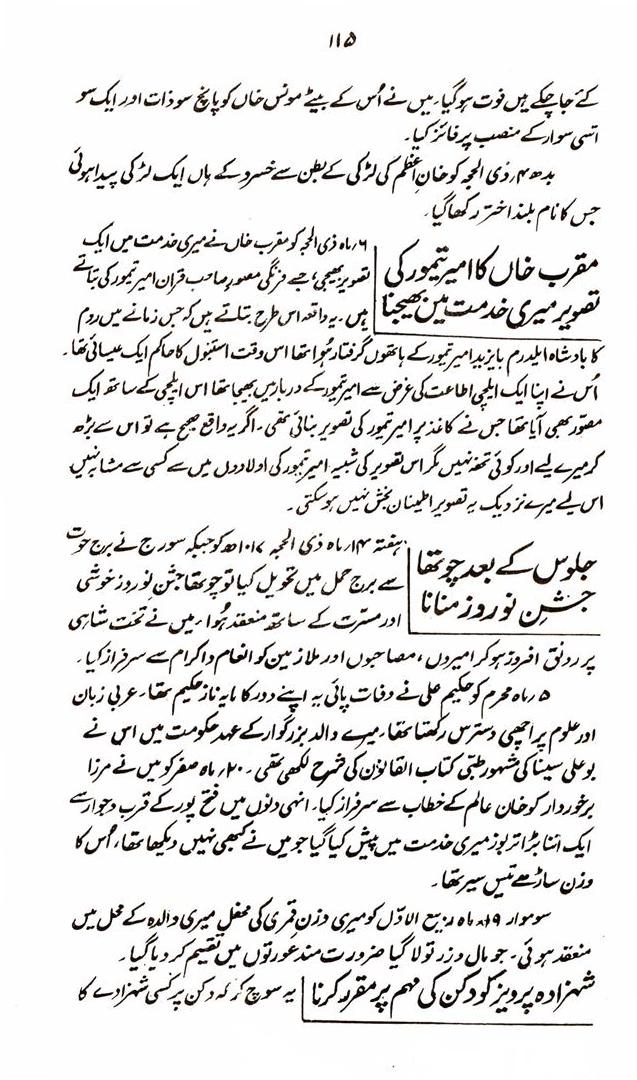 ۱۱۵
کئے جا چکے ہیں فوت ہو گیا۔ میں نے اُس کے بیٹے مونس خاں کو پانچ سو ذات اور ایک سو
اتسی سوار کے منصب پر فائز کیا۔
بدھ ۴؍ ذی الحجہ کو خانِ اعظم کی لڑکی کے بطن سے خسرو کے ہاں ایک لڑکی پیدا ہوئی
جس کا نام بلند اختر رکھا گیا۔
مقرب خاں کا امیر تیمور کی
تصویر میری خدمت میں بھیجنا
۶؍ ماہ ذی الحجہ کو مقرب خاں نے میری خدمت میں ایک
تصویر بھیجی، جسے فرنگی مصور صاحب قران امیر تیمور کی بتاتے
ہیں۔ یہ واقعہ اس طرح بتاتے ہیں کہ جس زمانے میں روم
کا بادشاہ ایلدرم بایزید امیر تیمور کے ہاتھوں گرفتار ہُوا تھا اس وقت استنبول کا حاکم ایک عیسائی تھا۔
اُس نے اپنا ایک ایلچی اطاعت کی غرض سے امیر تیمور کے دربار میں بھیجا تھا اس ایلچی کے ساتھ ایک
مصور بھی آیا تھا جس نے کاغذ پر امیر تیمور کی تصویر بنائی تھی۔ اگر یہ واقع صحیح ہے تو اس سے بڑھ
کر میرے لیے اور کوئی تحفہ نہیں مگر اس تصویر کی شبیہ امیر تیمور کی اولادوں میں سے کسی سے مشابہ نہیں
اس لیے میرے نزدیک یہ تصویر اطمینان بخش نہیں ہو سکتی۔
جلوس کے بعد چوتھا
جشنِ نوروز منانا
ہفتہ ۱۴؍ ماہ ذی الحجہ ۱۰۱۷ھ کو جبکہ سورج نے برج حوت
سے برج حمل میں تحویل کیا تو چوتھا جشنِ نوروز خوشی
اور مسرت کے ساتھ منعقد ہُوا۔ میں نے تخت شاہی
پر رونق افروز ہو کر امیروں، مصاحبوں اور ملازمین کو انعام و اکرام سے سرفراز کیا۔
۵؍ ماہ محرم کو حکیم علی نے وفات پائی یہ اپنے دور کا مایہ ناز حکیم تھا۔ عربی زبان
اور علوم پر اچھی دسترس رکھتا تھا، میرے والد بزرگوار کے عہد حکومت میں اس نے
بو علی سینا کی مشہور طبّی کتاب القانون کی شرح لکھی تھی۔ ۲۰؍ ماہ صفر کو میں نے مرزا
برخوردار کو خانِ عالم کے خطاب سے سرفراز کیا۔ انہی دنوں میں فتح پور کے قرب و جوار سے
ایک اتنا بڑا تربوز میری خدمت میں پیش کیا گیا جو میں نے کبھی نہیں دیکھا تھا، اُس کا
وزن ساڑھے تیس سیر تھا۔
سوموار ۱۹؍ ماہ ربیع الاوّل کو میری وزنِ قمری کی محفل میری والدہ کے محل میں
منعقد ہوئی۔ جو مال و زر تولا گیا ضرورت مند عورتوں میں تقسیم کر دیا گیا۔
شہزادہ پرویز کو دکن کی مہم پر مقرر کرنا
یہ سوچ کر کہ دکن پر کسی شہزادے کا